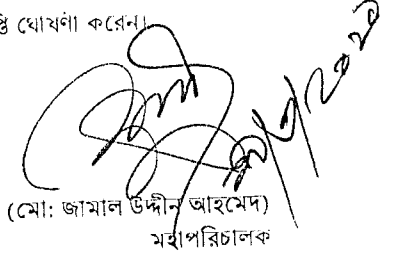 ঘোষণা করেন।
(মো: জামাল উদ্দীন আহমেদ)
মহাপরিচালক